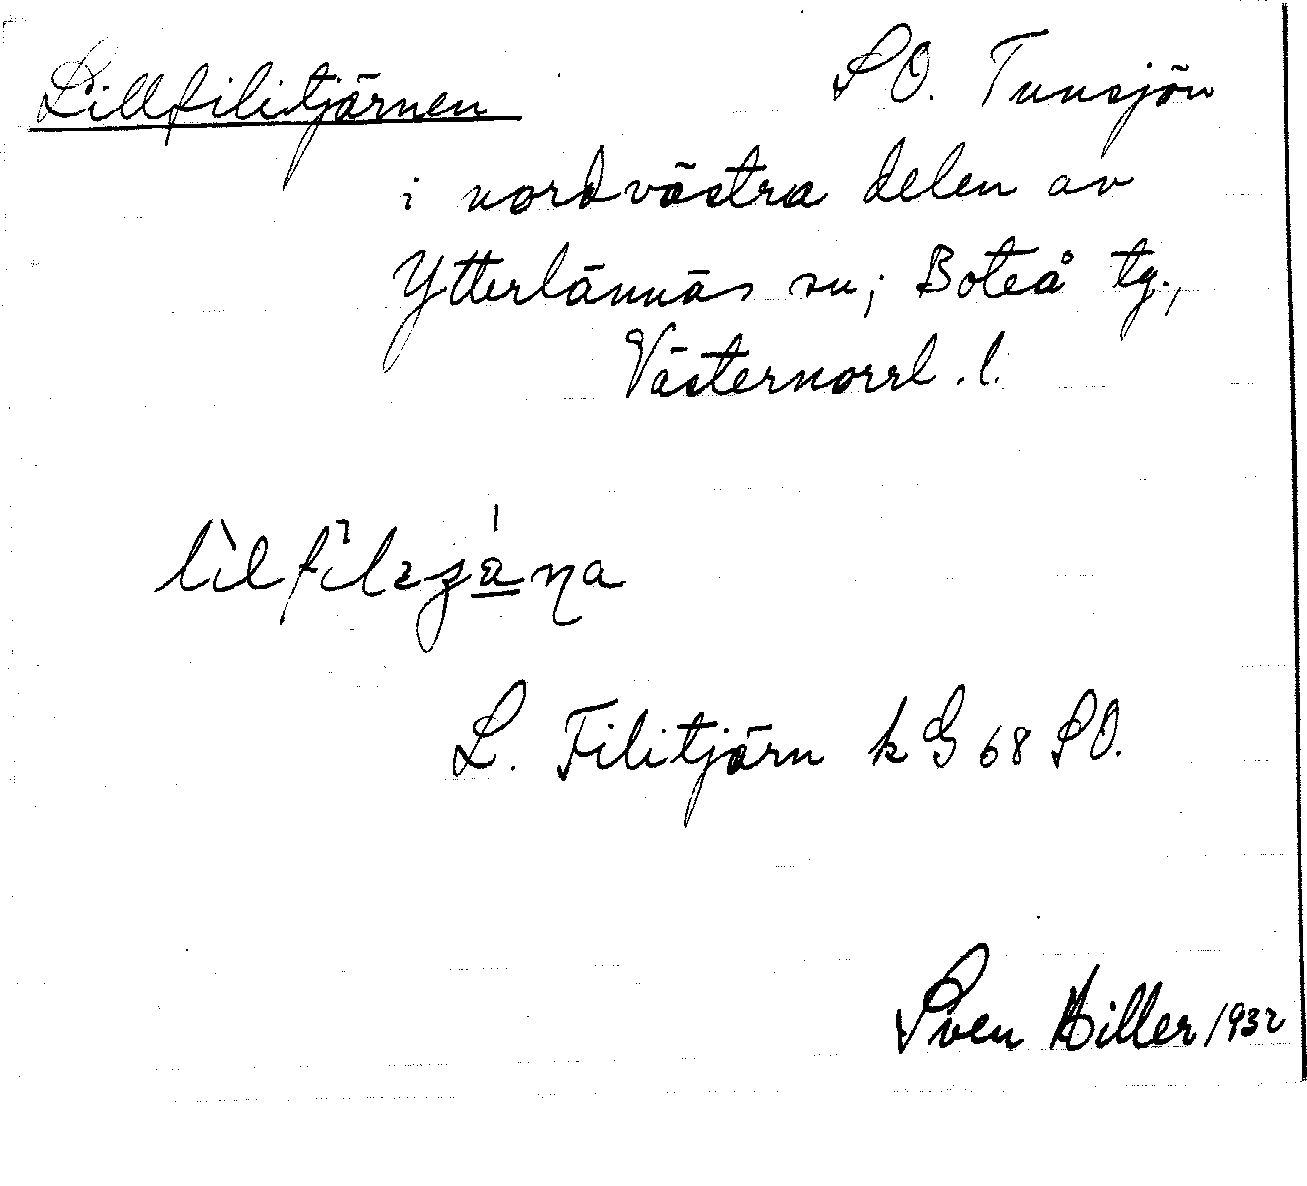 Lillfilitjärnen SO. Tunsjön
i nordvästra delen av
Ytterlännäs sn; Boteå tg.,
Västernorrl. l.
L. Filitjärn k G 68 SO.
Sven Hiller 1932